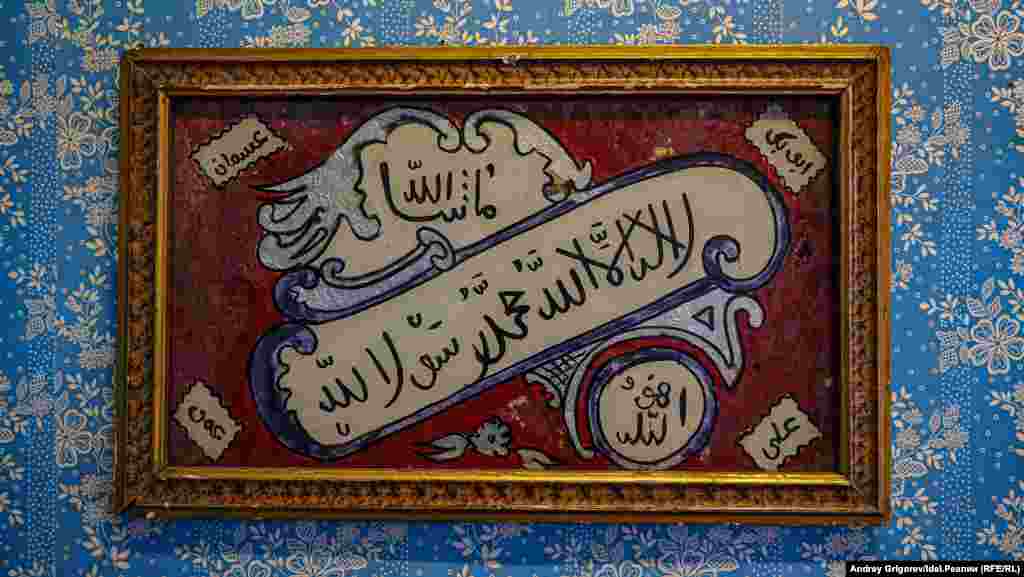 ابی بکر
عشمان
ماشاالله
لا اله الا الله محمد رسول الله
هو الله
عمر
علی
Andrey Grigorev/Idel.Реалии (RFE/RL)